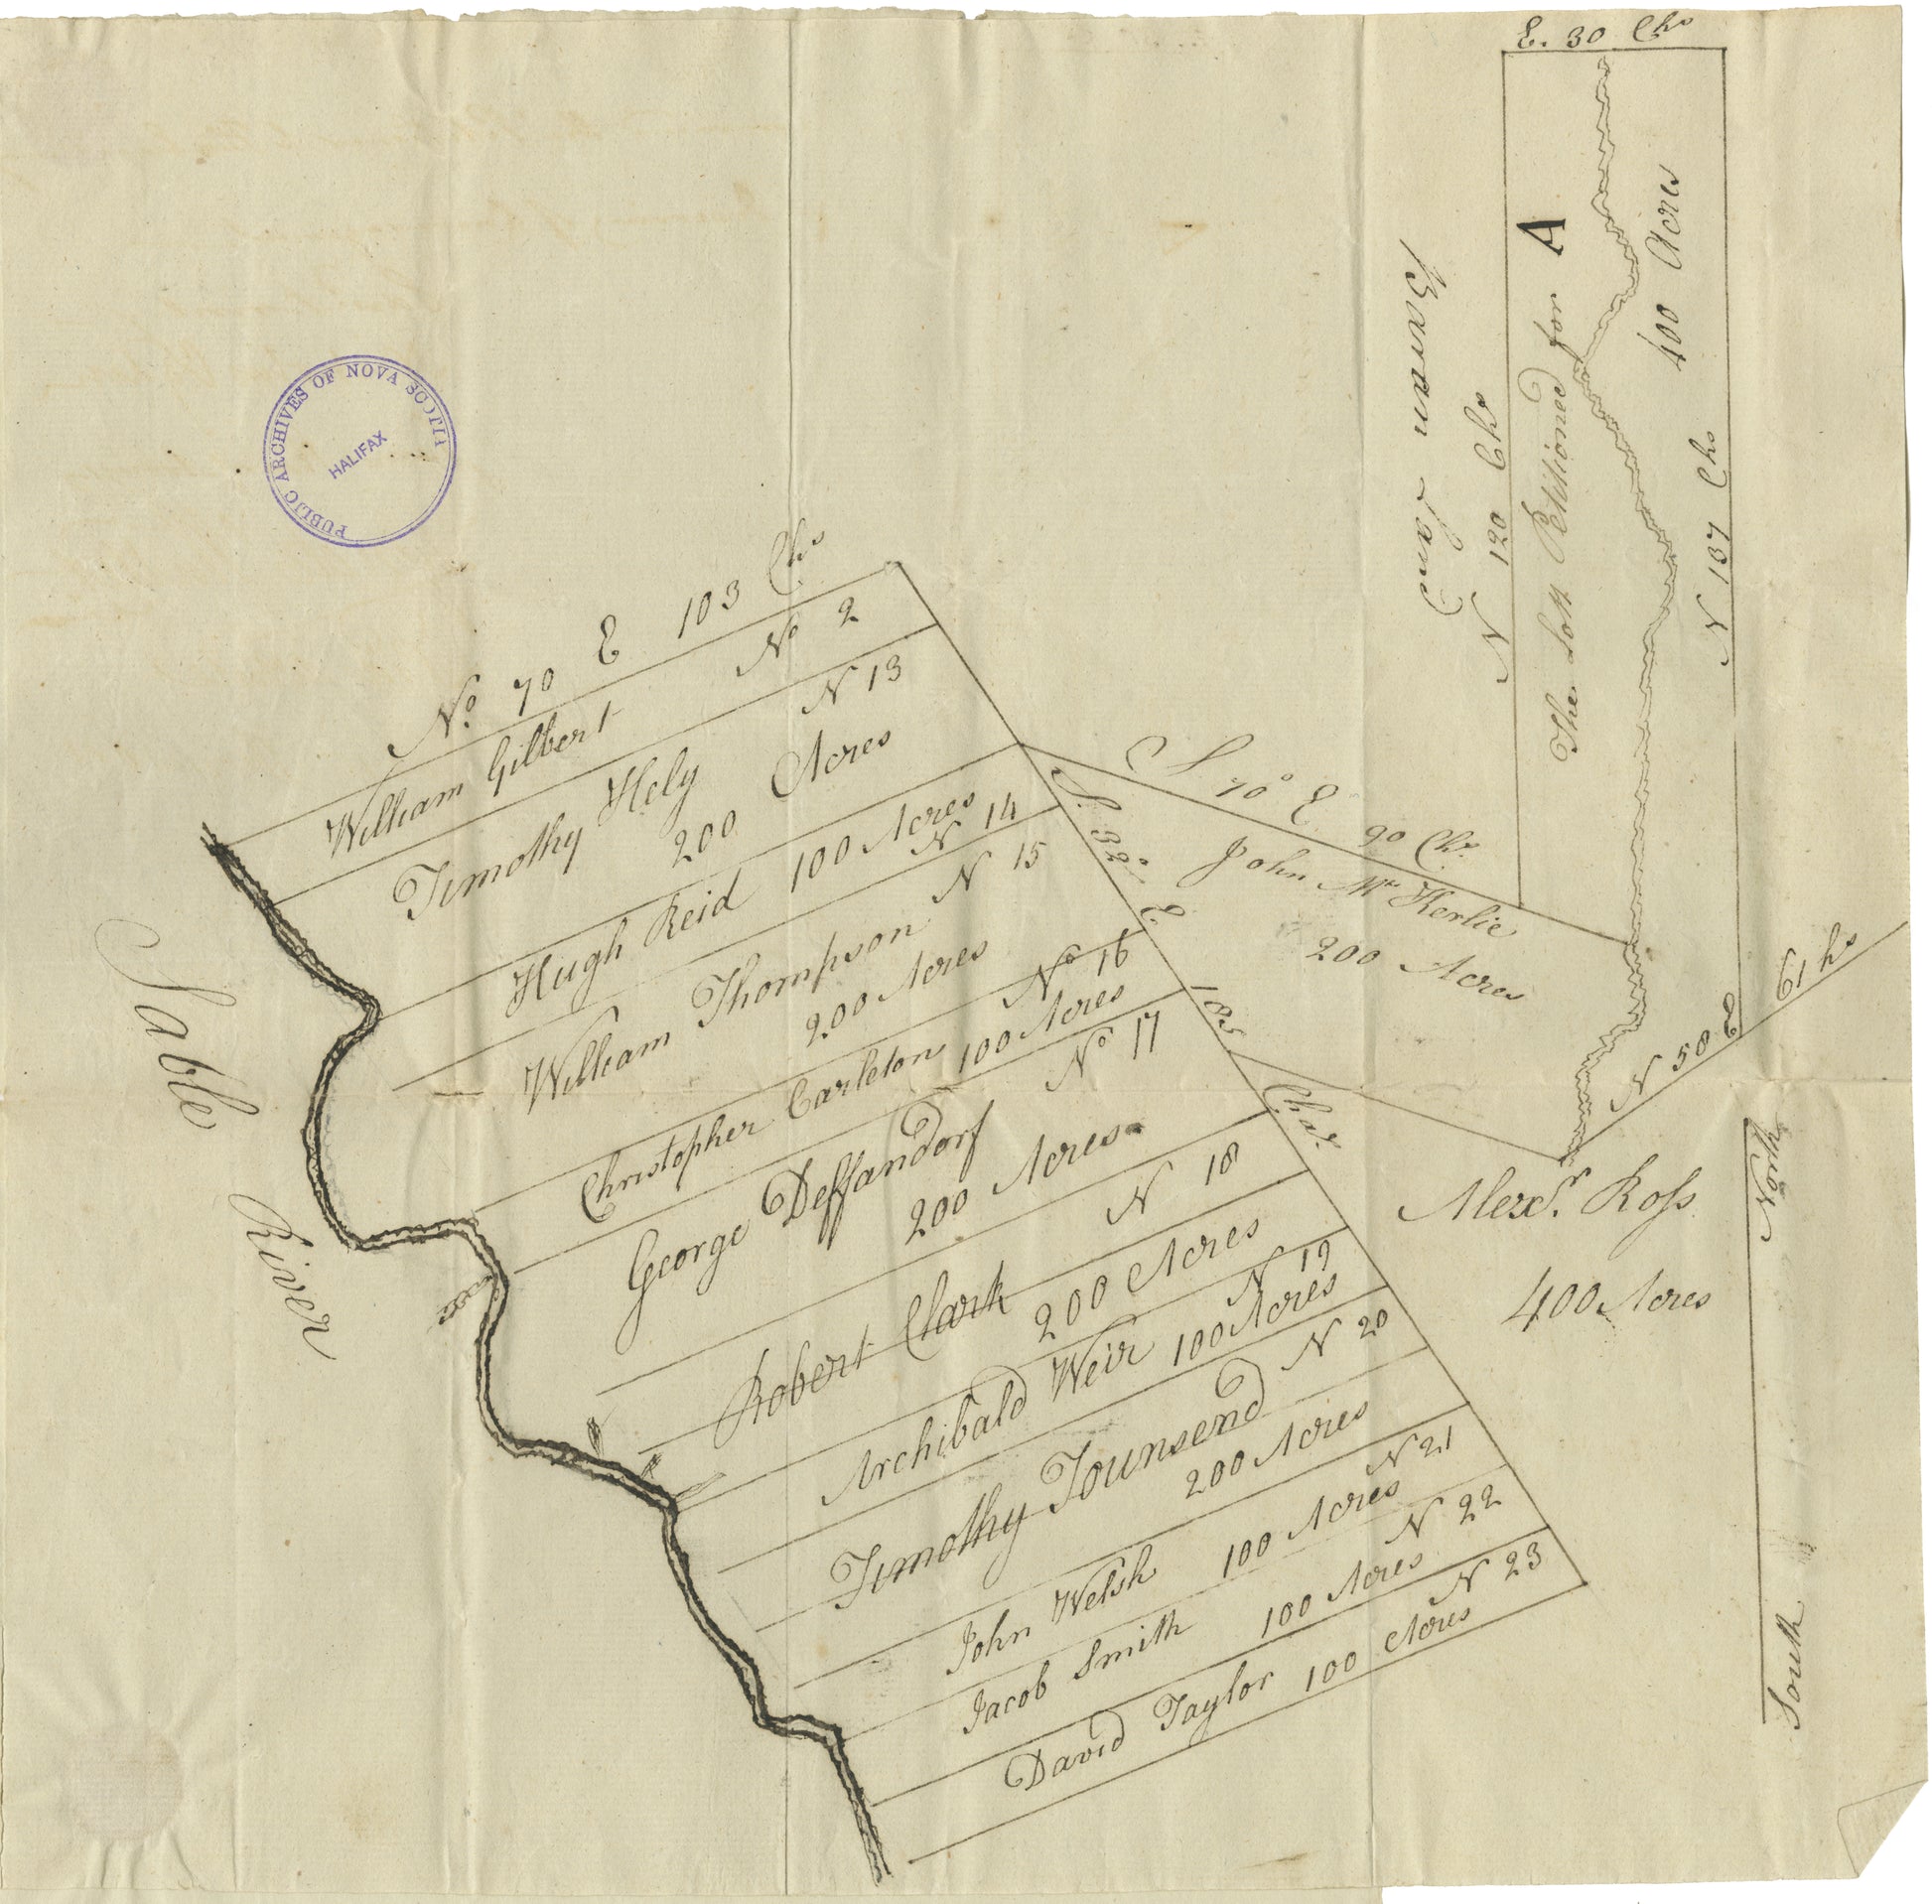 E. 30 Chs
A
400 Acres
The Lott Petitioned for
Barren Land
N 120 Chs
N 137 Chs
PUBLIC ARCHIVES OF NOVA SCOTIA
HALIFAX
No. 70 E 103 Chs
William Gilbert No 2
Timothy Hely N 13
200 Acres
Hugh Reid 100 Acres
N 14
William Thompson N 15
200 Acres
Christopher Carleton No 16
100 Acres
George Deffandorf No 17
200 Acres
Robert Clark N 18
200 Acres
Archibald Weir N 19
100 Acres
Timothy Townsend N 20
200 Acres
John Welsh N 21
100 Acres
Jacob Smith N 22
100 Acres
David Taylor N 23
100 Acres
S 70° E 90 Chs
John McKerlie
200 Acres
S. 32° E. 185 Chas.
N 50 E 61 hs
Alexr. Ross
400 Acres
North
South
Sable River